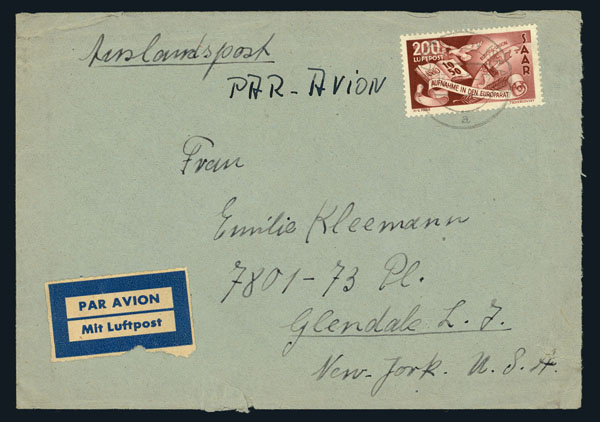 Auslandspost
PAR-AVION
200
LUFTPOST
SAAR
1950
AUFNAHME IN DEN EUROPARAT
a
Frau
Emilie Kleemann
7801-73 Pl.
Glendale L. J.
New-York. U. S. A.
PAR AVION
Mit Luftpost